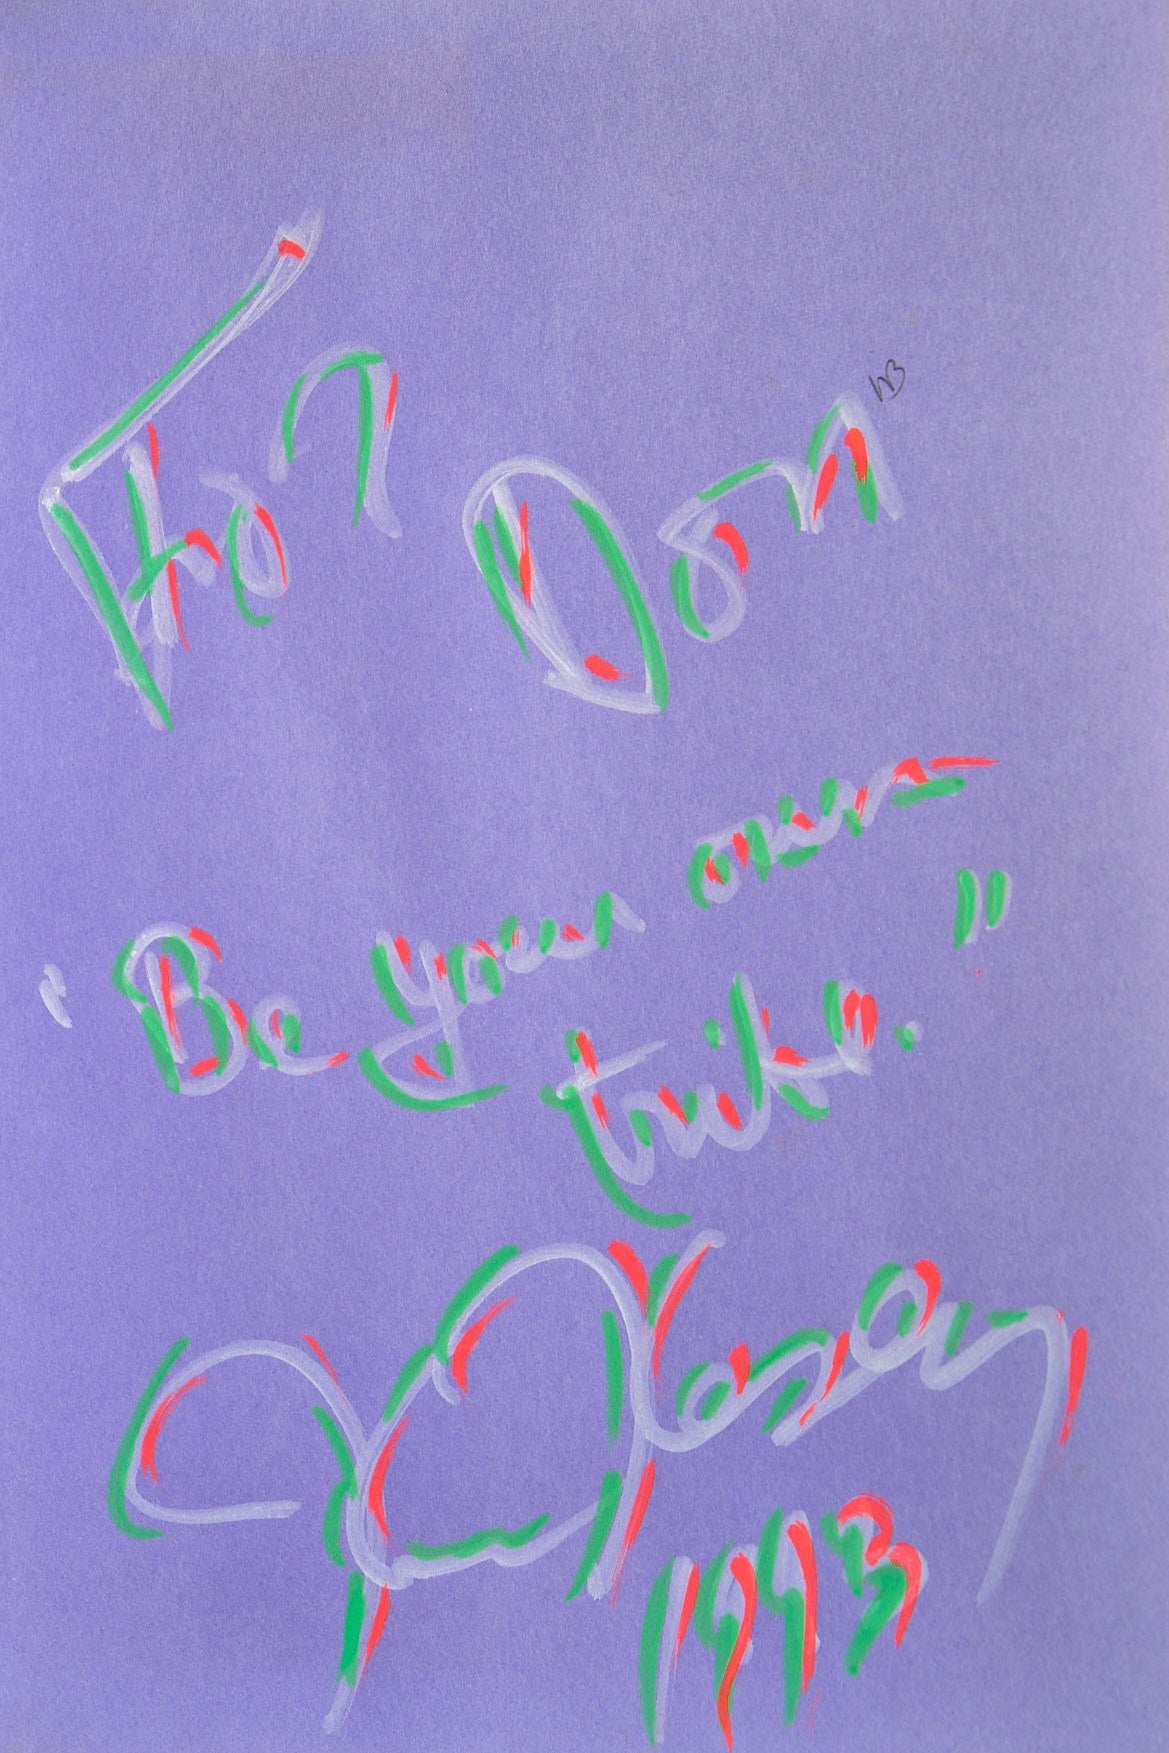 For Don
"Be your own
trike."
Kesey
1993